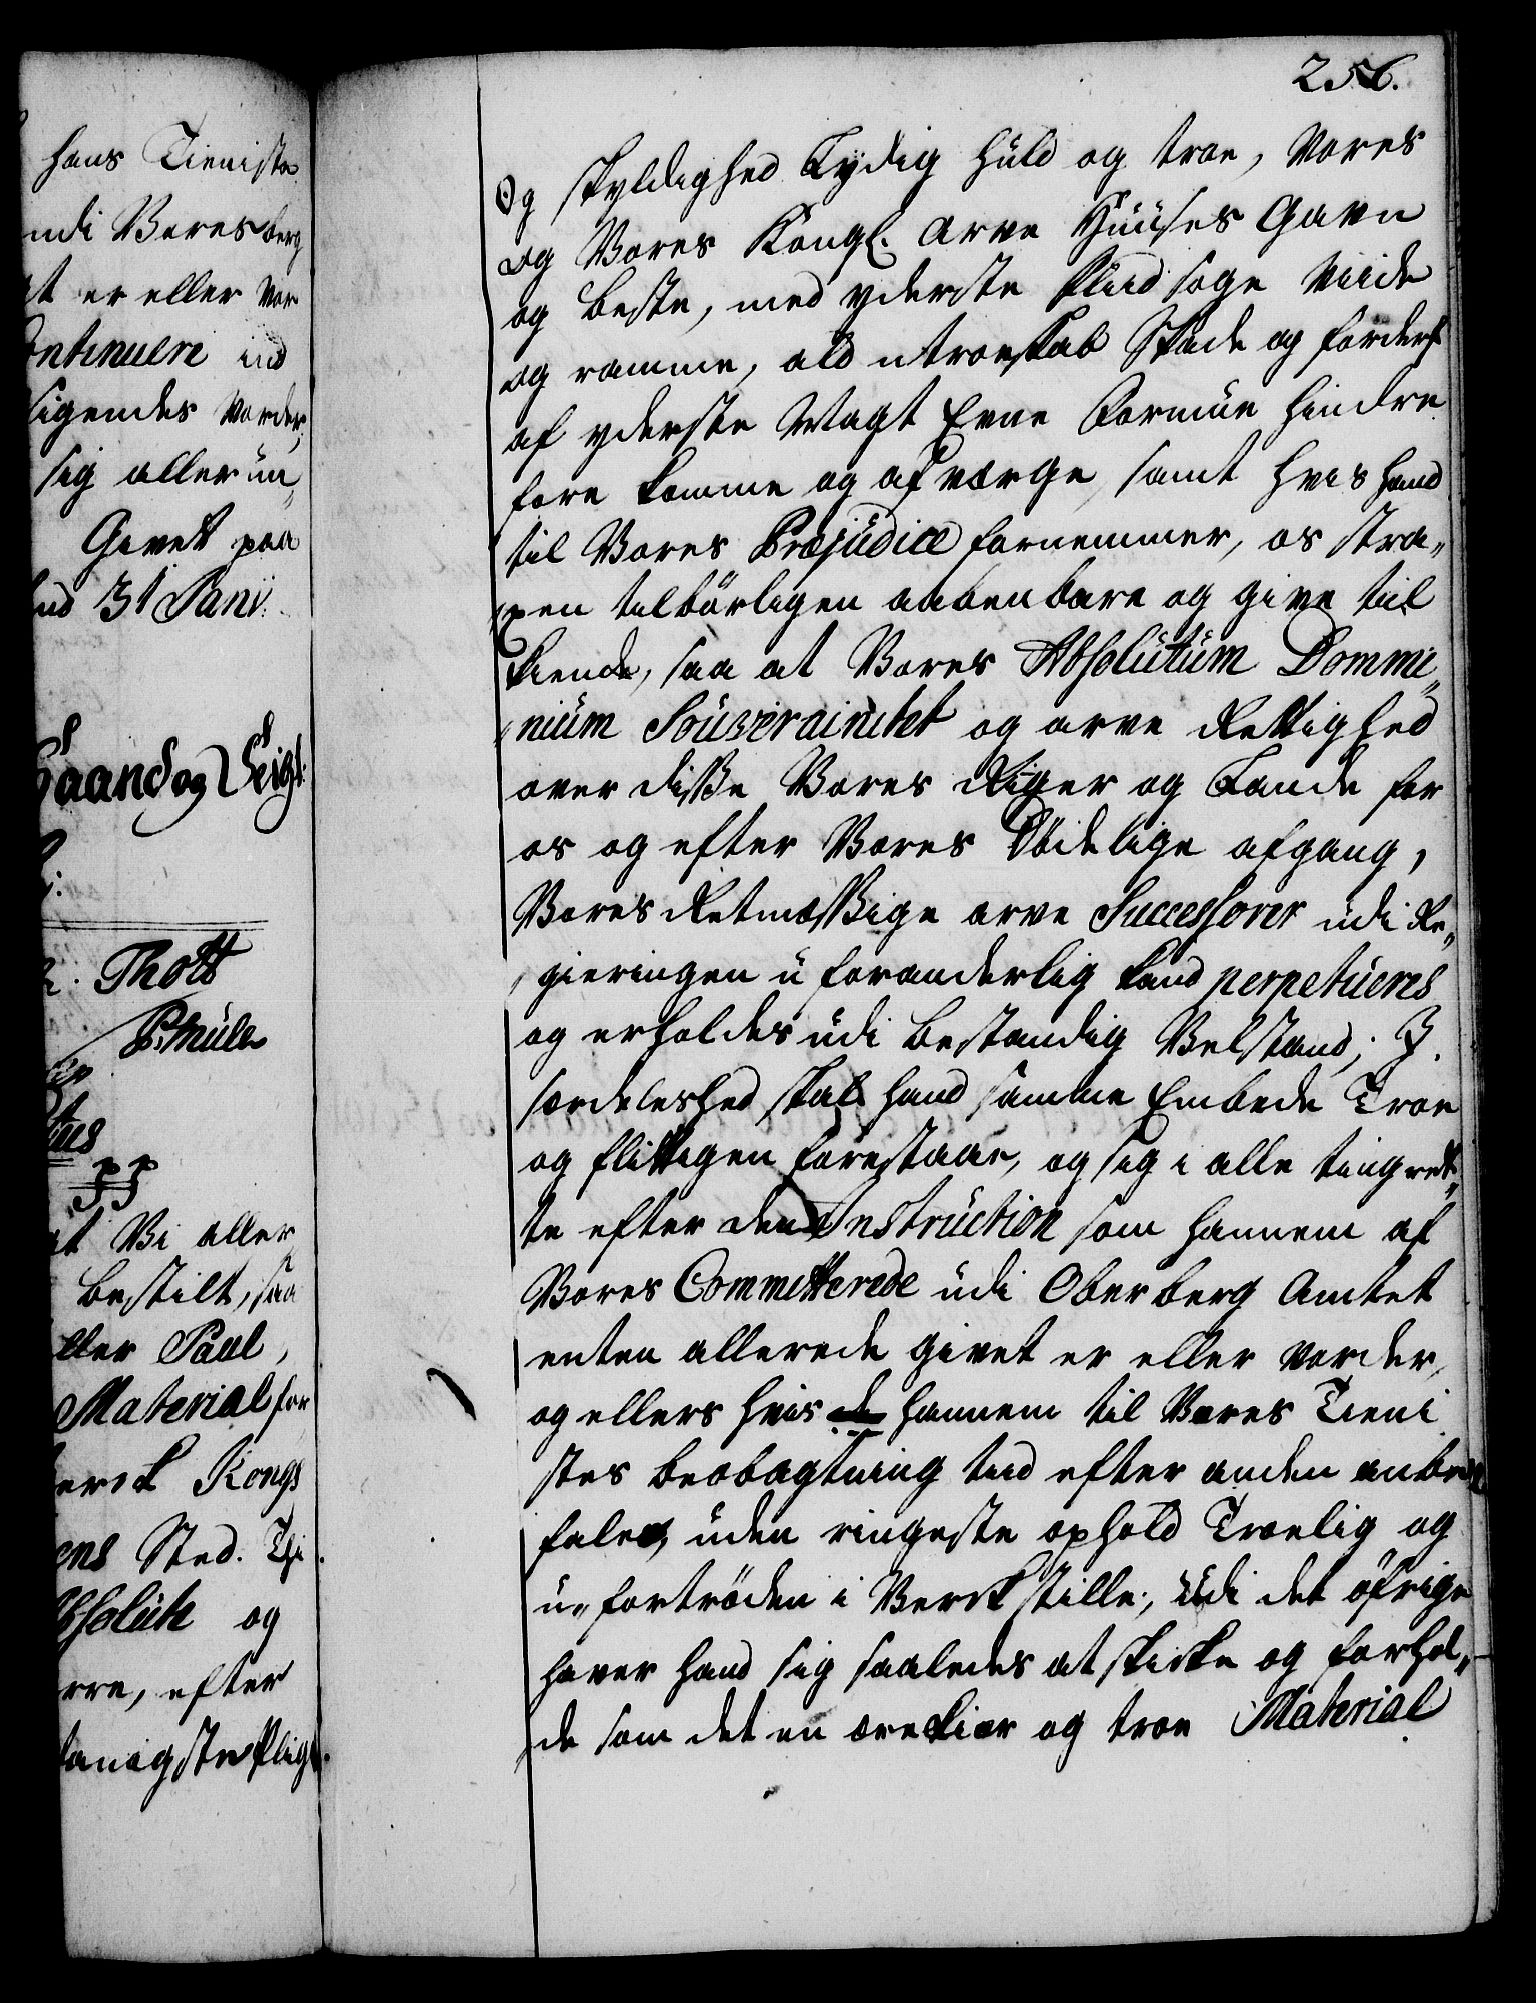 hans Tieniste
udi Vores berg
t er eller vor
Continuere ind
sigendes vorder,
sig allerun„
Givet paa
31 Janv:
Haand og Seigl:
Thott
P. Müller
at Vi aller
bestilt, saa
ller Paul,
Material for
Kongs
ens Sted. Thi
Absolute og
rre, efter
danigste Pligt
256.
og skyldighed Lydig huld og troe, Vores
og Vores Kongl. Arve Huuses Gavn
og beste, med yderste Fliid søge viide
og ramme, ald utroeskab Skade og fordærf
af yderste Magt Evne Formue hindre
fore komme og afværge, samt hvis hand
til Vores Præjudice fornemmer, os stra„
xen tilbørligen aabenbare og give til
kiende, saa at Vores Absolutum Dommi„
„nium Souverainetet og arve Rettighed
over disse Vores Riger og Lande for
os og efter Vores Dödelige afgang,
Vores Retmæssige arve Successorer udi Re„
gieringen u foranderlig kand perpetueres
og erholdes udi bestandig Velstand; J.
særdeleshed skal hand samme Embede Troe
og flittigen forestaae, og sig i alle ting ret„
te efter den Instruction som hannem af
Vores Committerede udi Oberberg Amtet
enten allerede givet er eller vorder,
og ellers hvis hannem til Vores Tieni
stes beobagtning tiid efter anden anbe
fales, uden ringeste ophold Troelig og
u„fortröden i Verck stille; Udi det öfrige
haver hand sig saaledes at skicke og forhol„
de som det en ærekiær og troe Material